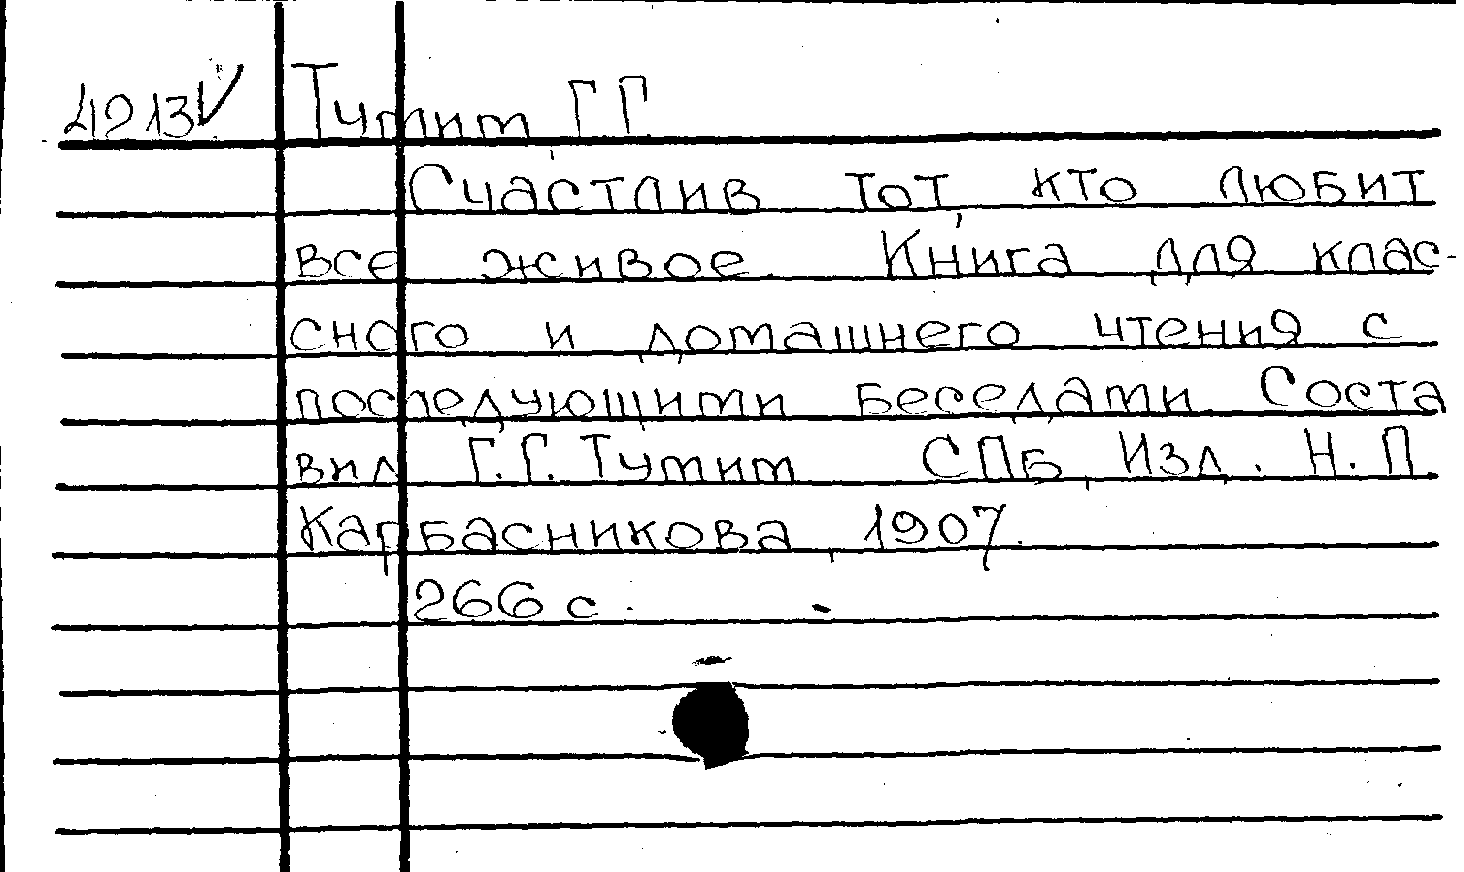 4213 Тутит Г Г
Счастлив тот, кто любит
все живое. Книга для клас-
сного и домашнего чтения с
последующими беседами. Соста
вил Г.Г. Тутит СПБ, Изд. Н.П.
Карбасникова, 1907.
266 с.